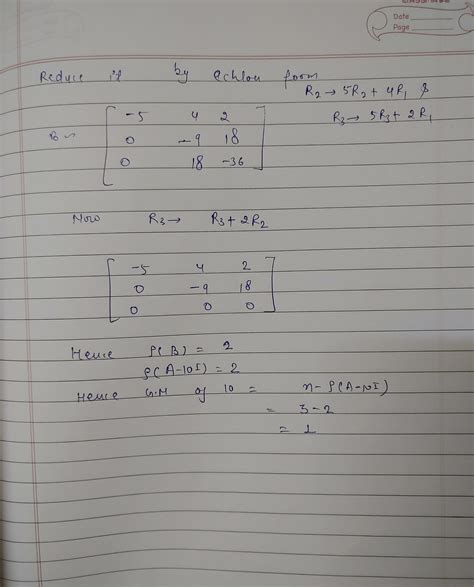 Date
Page
Reduce it by echlon form
R2 → 5R2 + 4R1 &
R3 → 5R3 + 2R1
B ~ [ -5 4 2
0 -9 18
0 18 -36 ]
Now R3 → R3 + 2R2
[ -5 4 2
0 -9 18
0 0 0 ]
Hence ρ(B) = 2
ρ(A-10I) = 2
Hence G.M of 10 = n - ρ(A-10I)
= 3-2
= 1